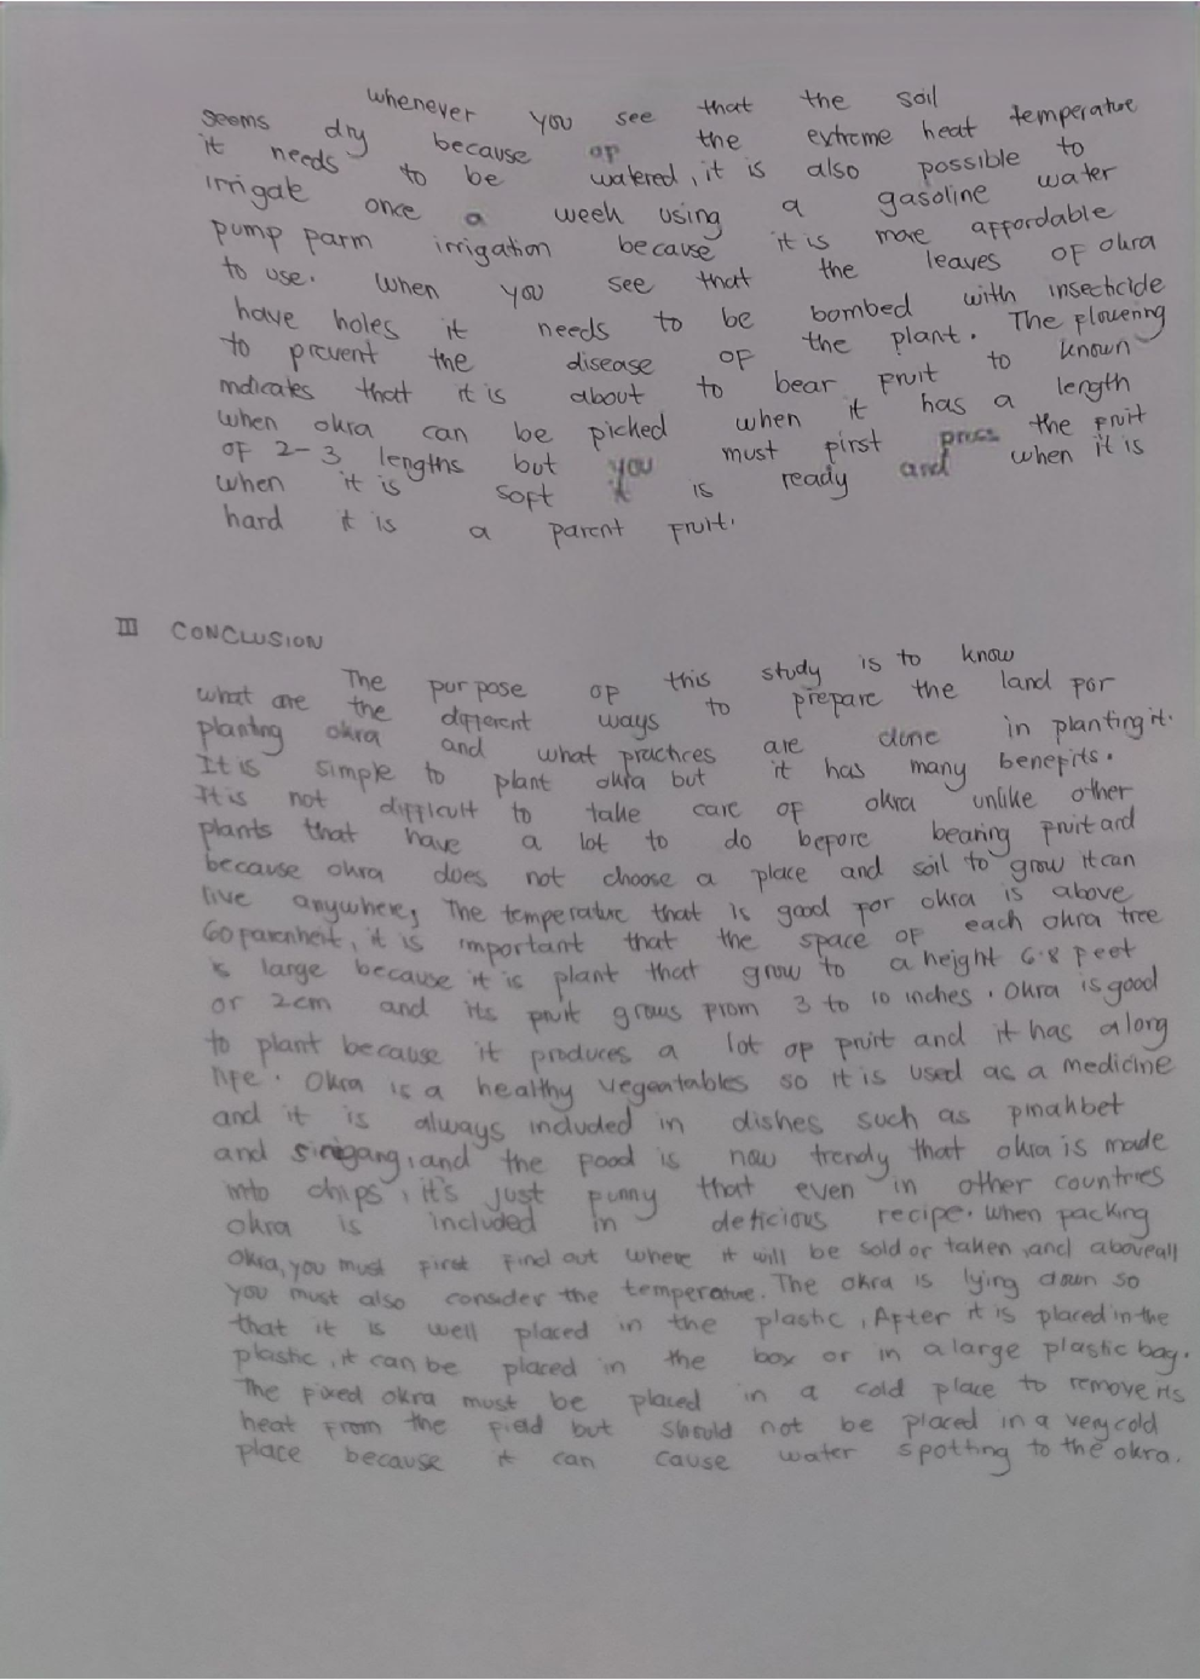 whenever you see that the soil
seems dry because op the extreme heat temperature
it needs to be watered, it is also possible to
irrigate once a week using a gasoline water
pump parm irrigation because it is more appordable
to use. when you see that the leaves of okra
have holes it needs to be bombed with insecticide
to prevent the disease of the plant. The plowering
indicates that it is about to bear pruit to known
when okra can be picked when it has a length
of 2-3 lengths but you must first press the pruit
when it is soft it is ready and when it is
hard it is a parent fruit.
III CONCLUSION
The purpose op this study is to know
what are the dipperent ways to prepare the land por
planting okra and what practices are done in planting it.
It is simple to plant okra but it has many benepits.
It is not dipficult to take care of okra unlike other
plants that have a lot to do bepore bearing pruit ard
because okra does not choose a place and soil to grow it can
live anywhere, The temperature that is good por okra is above
60 parenheit, it is important that the space op each okra tree
is large because it is plant that grow to a height 6-8 peet
or 2cm and its pruit grows prom 3 to 10 inches. Okra is good
to plant because it produces a lot op pruit and it has a long
lipe. Okra is a healthy vegeatables so it is used as a medicine
and it is always included in dishes such as pinahbet
and sinigang, and the pood is now trendy that okra is made
into chips, it's just punny that even in other countries
okra is included in deticious recipe. when packing
okra, you must first find out where it will be sold or taken, and above all
you must also consider the temperature. The okra is lying down so
that it is well placed in the plastic, Apter it is placed in the
plastic, it can be placed in the box or in a large plastic bag.
The pixed okra must be placed in a cold place to remove its
heat from the pield but should not be placed in a very cold
place because it can cause water spotting to the okra.